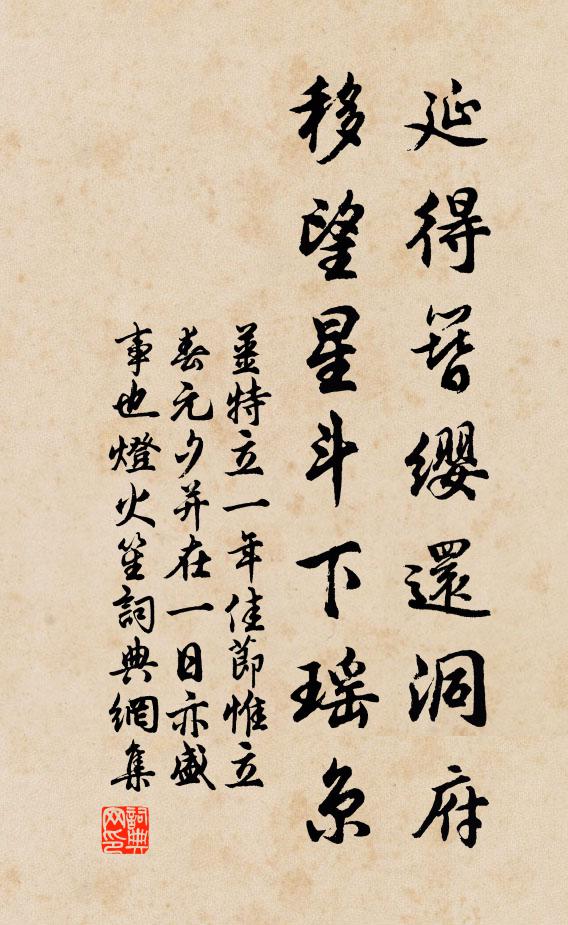 延得簪纓還洞府
移望星斗下瑤京
薑特立一年佳節惟立
春元夕并在一日亦盛
事也燈火笙詞典網集
詞典網印